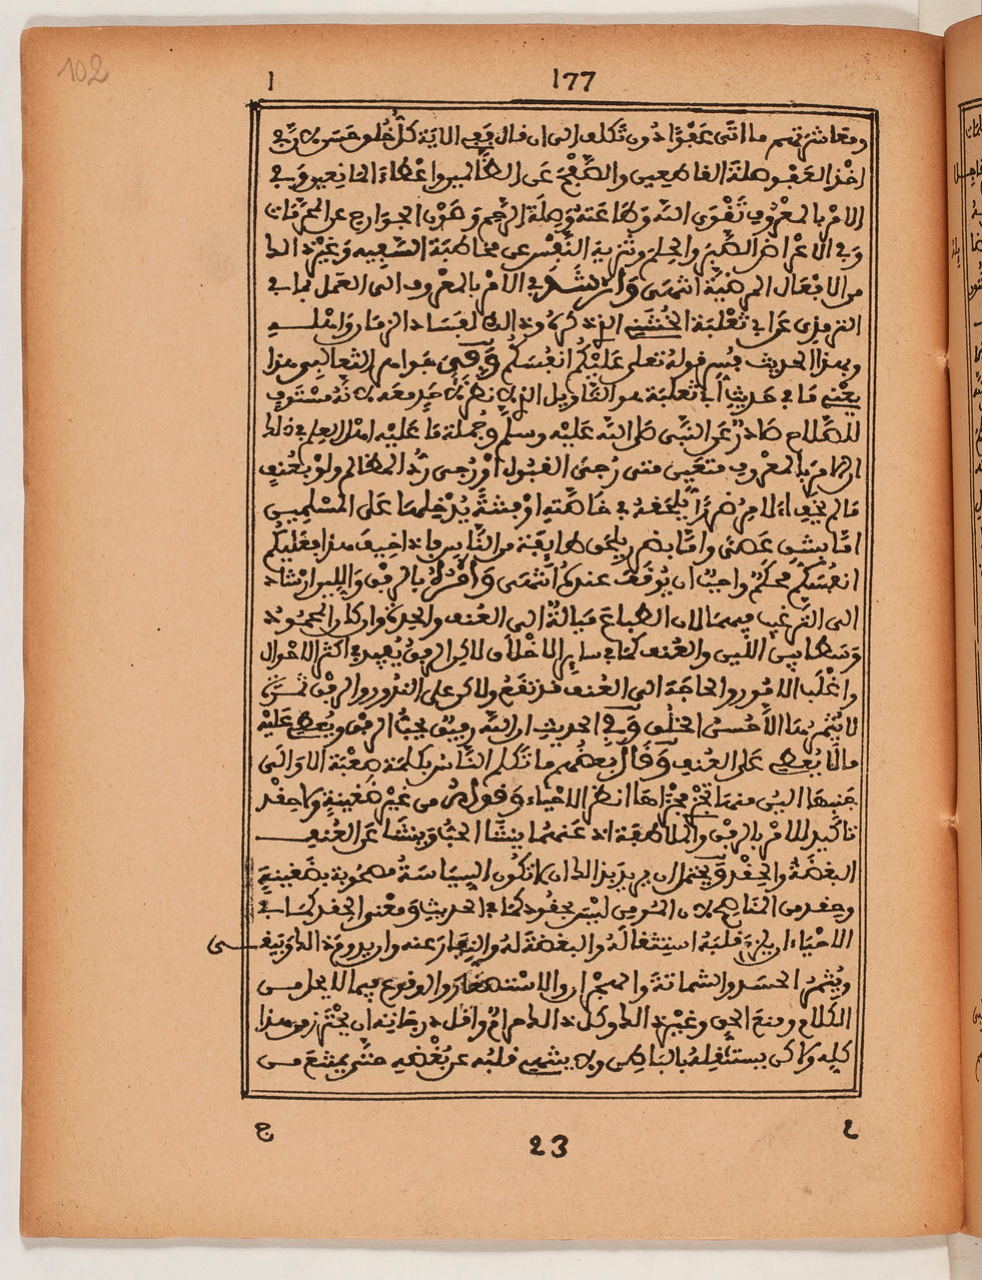 102
177
1
ومعاشرتهم ما اتى عفوا دون تكلف الى ان قال ففي الاية كل خلق حسن لان في
اخذ العفو صلة القاطعين والصفح عن الظالمين واعطاء المانعين وفي
الامر بالمعروف تقوى الله وطاعته وصلة الرحم وصون الجوارح عن المحرمات
وفي الاعراض الصبر والحلم وتنزيه النفس عن مخاطبة السفيه وغير ذالك
من الافعال المرضية انتهى وارشد في الامر بالمعروف الى العمل بما في
الترمذي عن ابي ثعلبة الخشني الذي ذكره وذالك لفساد الزمان واهله
وبهذا الحديث يفسر قوله تعلى عليكم انفسكم وفي جواهر الثعالبي هذا
يعني ما في حديث ابي ثعلبة هو التاويل الذي لا نظر لاحد معه لانه مستوف
للصلاح صادر عن النبي صلى الله عليه وسلم وجملة ما عليه اهل العلم في ذلك
ان الامر بالمعروف متعين متى رجي القبول او رجي رد المظالم ولو بعنف
ما لم يخف الامر ضررا يلحقه في خاصته او فتنة يدخلها على المسلمين
اما بشق عصى واما بضرر يلحق طايفة من الناس فاذا خيف هذا فعليكم
انفسكم محكم واجب ان يوقف عنده انتهى وامره بالرفق واللين ارشاد
الى الترغيب فيهما لان الطباع ميالة الى العنف والحدة وان كان المحمود
وسطا بين اللين والعنف كما في ساير الاخلاق لاكن الرفق يفيد في اكثر الاحوال
واغلب الامور والحاجة الى العنف قد تقع ولاكن على الندور والرفق ثمرة
لا يثمرها الا حسن الخلق وفي الحديث ان الله رفيق يحب الرفق ويعطي عليه
ما لا يعطي على العنف وقال بعضهم ما تكلم الناس بكلمة صعبة الا والى
جنبها الين منها تجري مجراها انظر الاحياء وقوله من غير ضغينة ولا حقد
تاكيد للامر بالرفق والملاطفة اذ عنهما ينشا الحب وينشا عن العنف
البغضة والحقد ويحتمل ان يريد بذالك ان لا تكون السياسة مصحوبة بضغينة
وحقد من الناصح لان المومن ليس بحقود كما في الحديث ومعنى الحقد كما في
الاحياء ان يلزم قلبه استثقاله والبغضة له والنفار عنه وان يدوم ذالك ويبقى
ويثمر الحسد والشماتة والهجران والاستصغار والوقوع فيما لا يحل من
الكلام ومنع الحق وغير ذالك وكل ذالك حرام واقل درجاته ان يحترز من هذا
كله ولاكن يستثقله بالباطن ولا ينتهي قلبه عن بغضه حتى يمتنع من
ج
23
ع